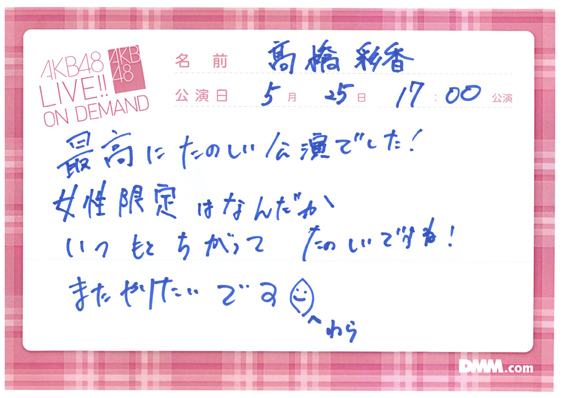 AKB48
LIVE!!
ON DEMAND
AKB
48
名前 髙橋彩香
公演日 5月25日 17:00公演
最高にたのしい公演でした!
女性限定はなんだか
いつもとちがってたのしいですね!
またやりたいです
わら
DMM.com